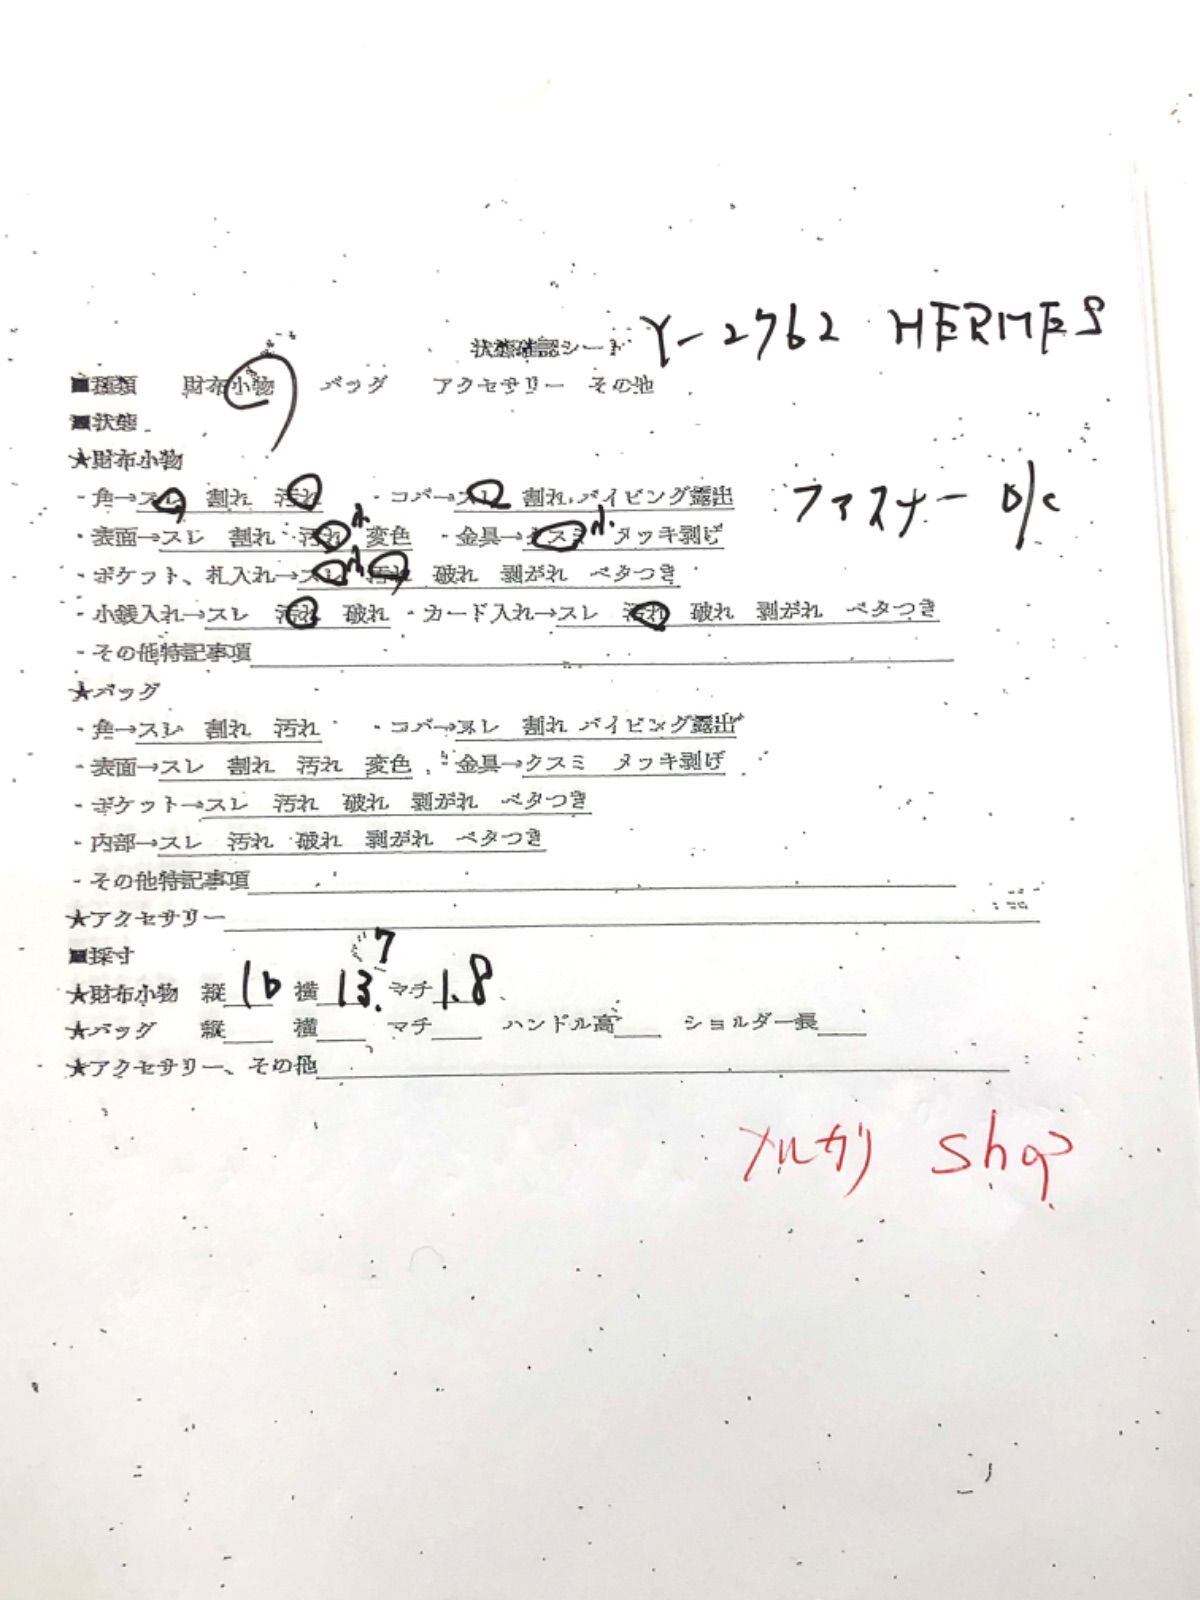 状態確認シート Y-2762 HERMES
■種類 財布小物 バッグ アクセサリー その他
■状態
★財布小物
・角→スレ 割れ 汚れ ・コバ→スレ 割れ パイピング露出 ファスナー O/C
・表面→スレ 割れ 汚れ 小 変色 ・金具→クスミ 小 メッキ剥げ
・ポケット、札入れ→スレ 小 汚れ 破れ 剥がれ ベタつき
・小銭入れ→スレ 汚れ 破れ ・カード入れ→スレ 汚れ 破れ 剥がれ ベタつき
・その他特記事項
★バッグ
・角→スレ 割れ 汚れ ・コバ→スレ 割れ パイピング露出
・表面→スレ 割れ 汚れ 変色 ・金具→クスミ メッキ剥げ
・ポケット→スレ 汚れ 破れ 剥がれ ベタつき
・内部→スレ 汚れ 破れ 剥がれ ベタつき
・その他特記事項
★アクセサリー
■採寸
★財布小物 縦 横 13.7 マチ 1.8
★バッグ 縦 横 マチ ハンドル高 ショルダー長
★アクセサリー、その他
メルカリ shop